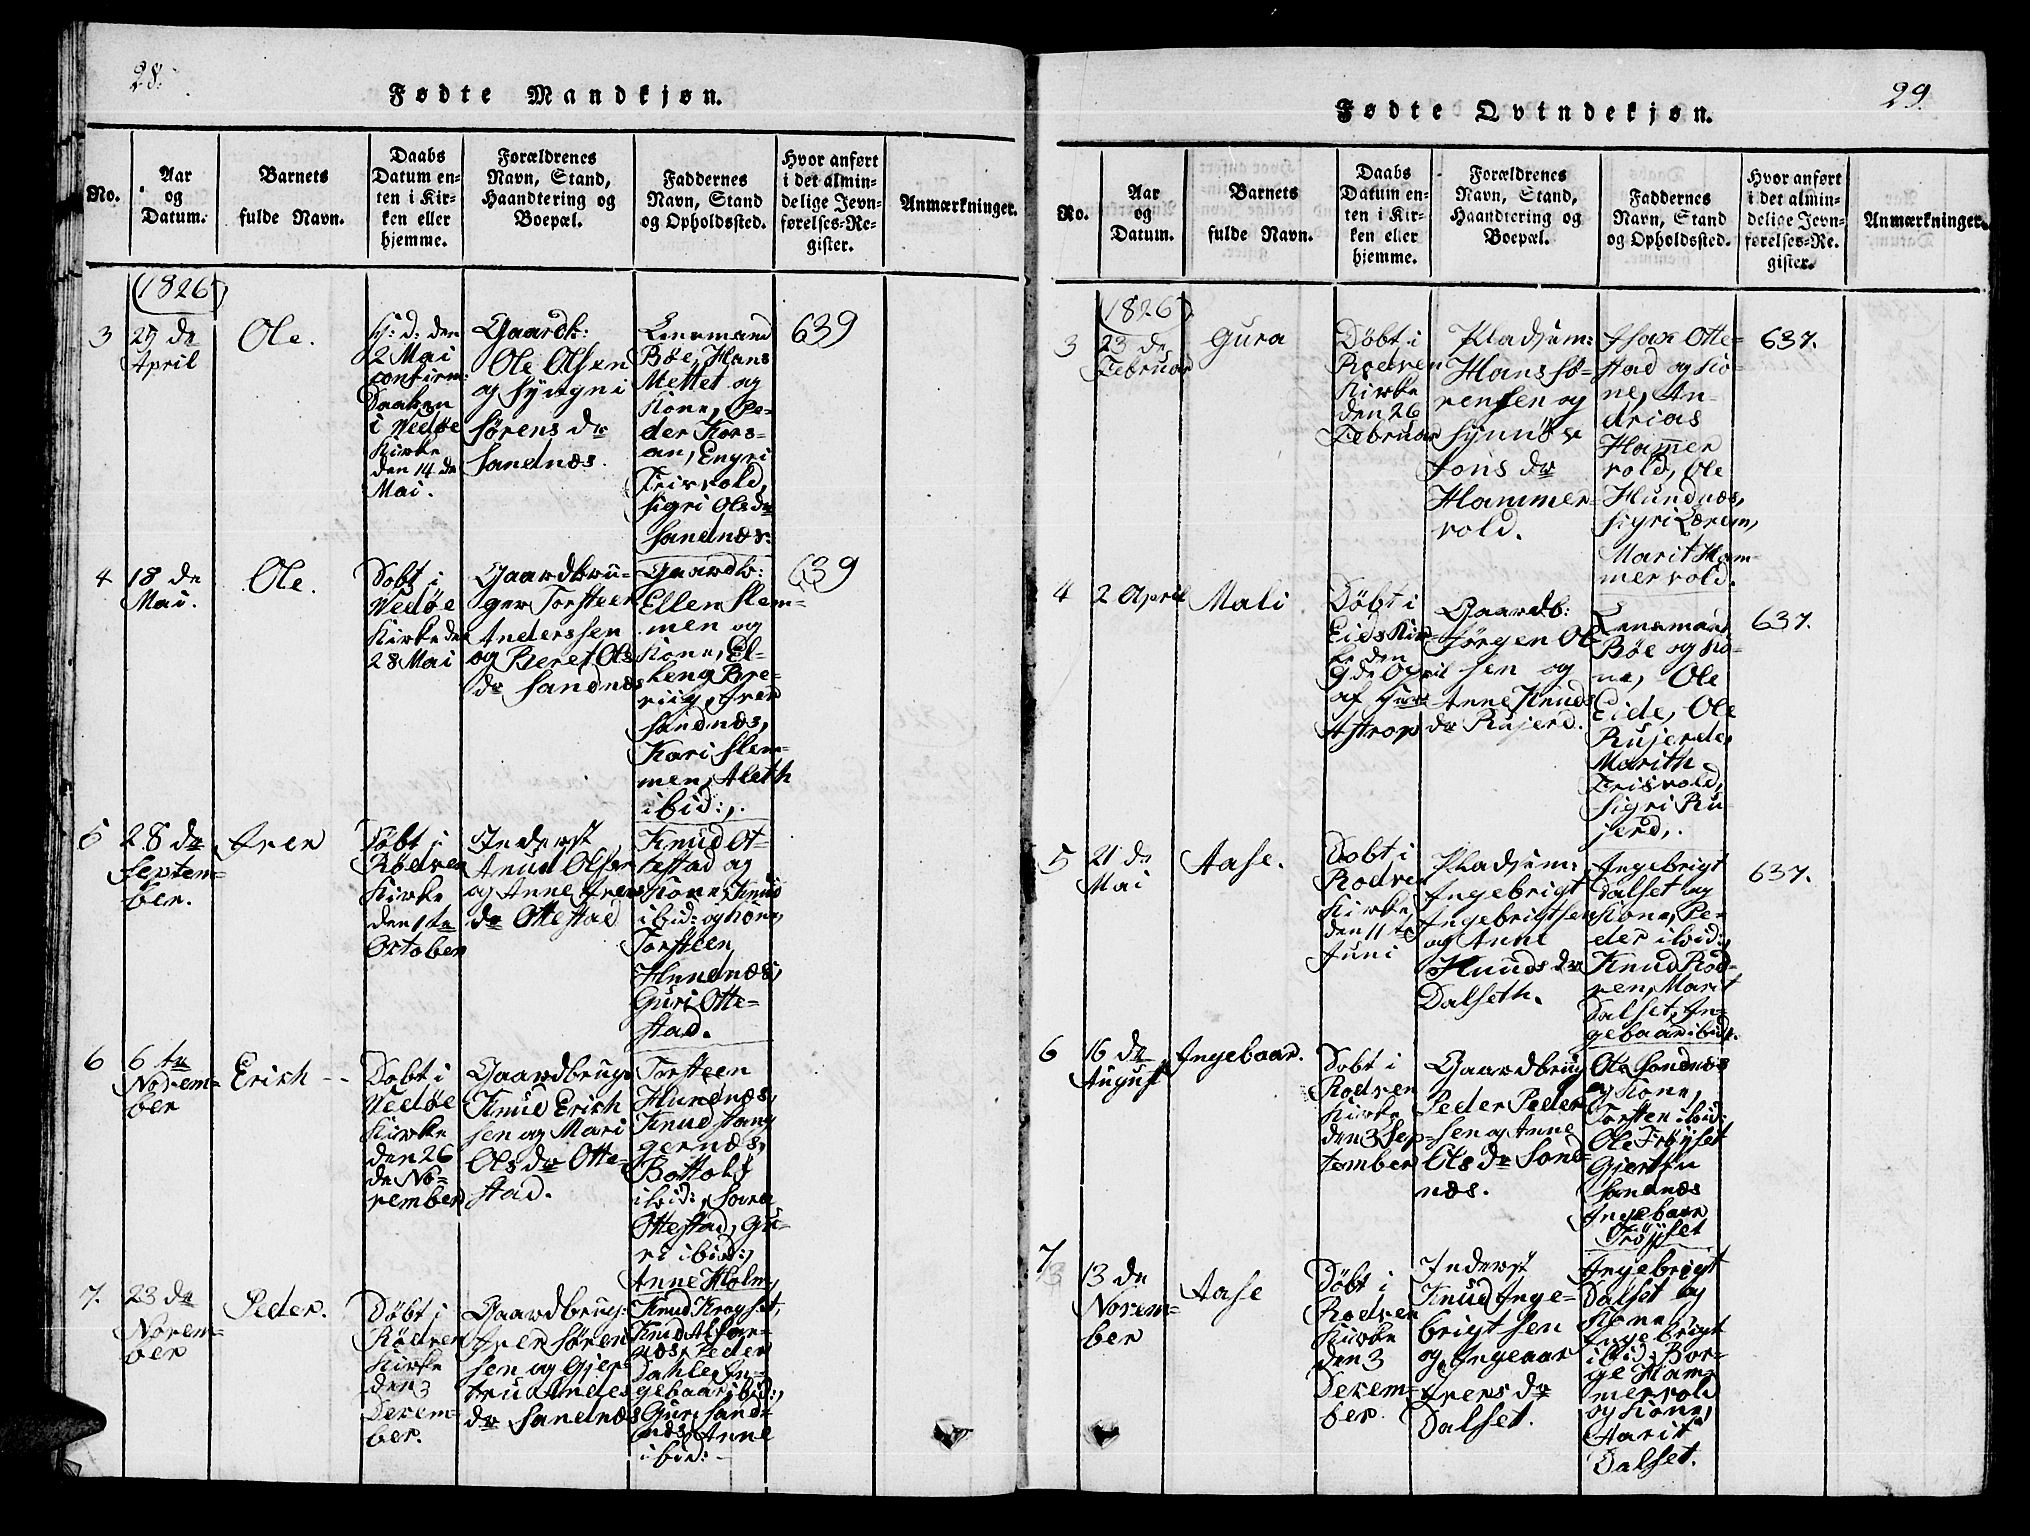 28.
Fødte Mandkjøn.
No.
Aar
og
Datum.
Barnets
fulde Navn.
Daabs
Datum en-
ten i Kir-
ken eller
hjemme.
Forældrenes
Navn, Stand,
Haandtering og
Boepæl.
Faddernes
Navn, Stand
og Opholdssted.
Hvor anført
i det almin-
delige Jevn-
førelses-Re-
gister.
Anmærkninger.
1826
3
de
April
Ole.
H: d: den
2 Mai
confirm:
Daaben
i Wedøe
Kirke
den 14 de
Mai.
Gaardb:
Ole Olsen
og Syngni
Sørens dr
Sandnæs.
Lensmand
Bøe, Hans
Mettet og
Kone, Pe-
der Kors-
an, Engri
Frisvold,
Sigri Olsdr
Sandnæs:
639
4
18 de
Mai.
Ole.
Dobt i
Wedøe
Kirke den
28 Mai
Gaardbru-
ger Torsteen
Anderssen
og Beret Ols
dr Sandnæs
Gaardb:
Ellen Slem-
men og
Kone, El-
ling
Iver
Sandnæs,
Kari Slem-
men, Aleth
ibid:,
639
5
28 de
Septem-
ber.
Iver
Døbt i
Rødven
Kirke
den 1te
October
Inderst
Knud Olsen
og Anne Ivers
dr Ottestad
Knud Ot-
testad og
Kone, Knud
ibid: og Kone,
Torsteen
Hundnæs,
Guri Otte-
stad.
6
6 te
Novem-
ber
Erich
Døbt i
Wedøe
Kirke
den 26
de No-
vember
Gaardbrug:
Knud Erich
sen og Mari
Ols dr Otte-
stad.
Torsteen
Hundnæs,
Knud Stan
gernæs,
Bottolf
ibid:,
Ottestad, Gu-
ri ibid:,
Anne Holm,
7.
23 de
Novem-
ber
Peder.
Døbt i
Rødven
Kirke
den 3
Decem-
ber.
Gaardbrug:
Iver Søren
sen og Gjer-
tru Andes
dr Sandnæs
Knud Krogset,
Knud
næs, Peder
Dahle, In-
gebaar ibid:,
Guri Sand-
næs, Anne
ibid: -
29.
Fødte Qvindekjøn.
No.
Aar
og
Datum.
Barnets
fulde Navn.
Daabs
Datum en-
ten i Kir-
ken eller
hjemme.
Forældrenes
Navn, Stand,
Haandtering og
Boepæl.
Faddernes
Navn, Stand
og Opholdssted.
Hvor anført
i det almin-
delige Jevn-
førelses-Re-
gister.
Anmærkninger.
1826
3
23 de
Februar
Gura
Døbt i
Rødven
Kirke
den 26
Februar
Pladsem:
Hans Sø-
rensen og
Synnøve
Jons dr
Hammer-
vold.
Isax Otte-
stad og Ko-
ne, An-
drias
Hammer
vold, Ole
Hundnæs,
Sigri Lerem,
Marit Ham-
mervold.
637.
4
2 April
Mali
Døbt i
Eids Kir-
ke den
9 de April
af Hur
Astrop
Gaardb:
Jørgen Ol-
sen og
Anne Knuds
dr Rujerd.
Lensmand
Bøe og Ko-
ne, Ole
Eide, Ole
Rujerde,
Marith
Frisvold,
Sigri Ru-
jerd,.
637.
5
21 de
Mai
Aase.
Dobt i
Rodven
Kirke
den 11 te
Juni
Pladsem:
Ingebrigt
Ingebrigtsen
og Anne
Knuds dr
Dalseth.
Ingebrigt
Dalset og
Kone, Pe-
der ibid:,
Knud Rød-
ven, Marit
Dalset, In-
gebaar ibid:.
637.
6
16 de
August
Ingebaar.
Dobt i
Rodven
Kirke
den 3 Sep-
tember
Gaardbrug
Peder Peder
sen og Anne
Ols dr Sand-
næs.
Ole Sandnæs
og Kone,
Torsten ibid:
Ole Frøyset
Gjertru
Sandnæs
Ingebaar
Frøyset
7
13 de
Novem-
ber
Aase
Døbt i
Rodven
Kirke
den 3
Decem-
ber.
Inderst
Knud Inge-
brigtsen
og Ingeaar
Ivers dr
Dalset.
Ingebrigt
Dalset og
Kone,
Ingebrigt
ibid: Bør-
ge Ham-
mervold
og Kone,
Marit
Dalset.